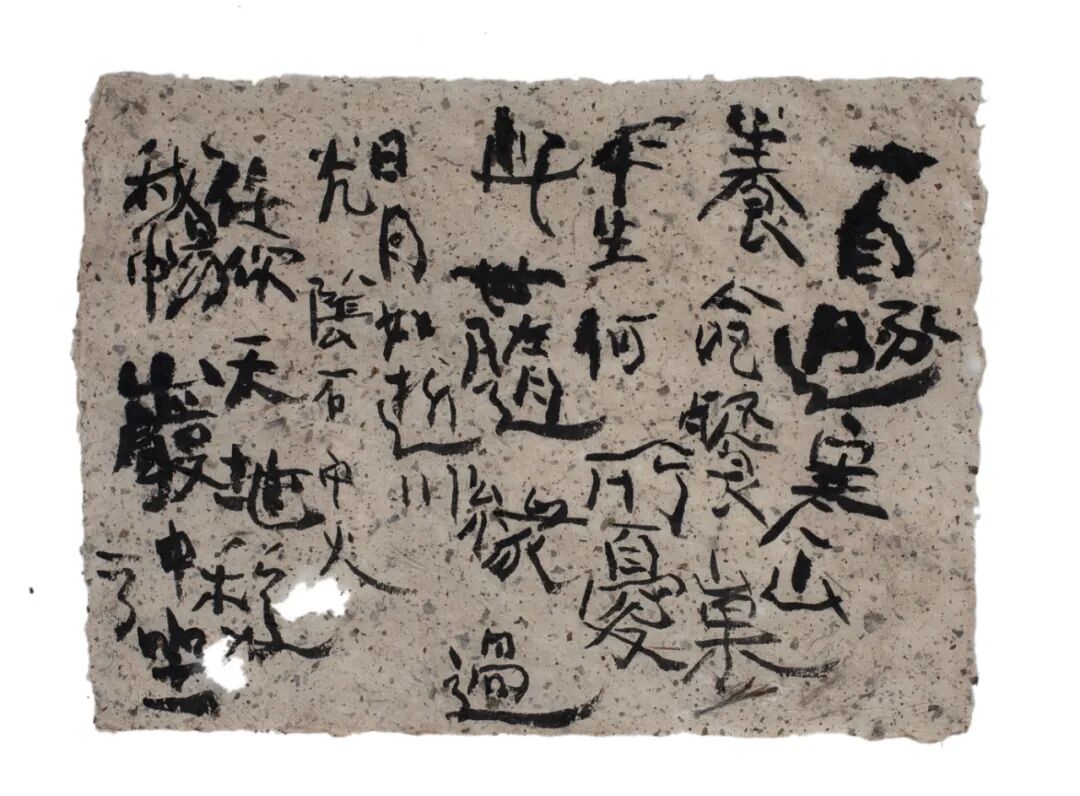 一自遯寒山
養命餐山果
平生何所憂
此世隨緣過
日月如逝川
光陰石中火
任你天地移
我暢巖中坐
一了